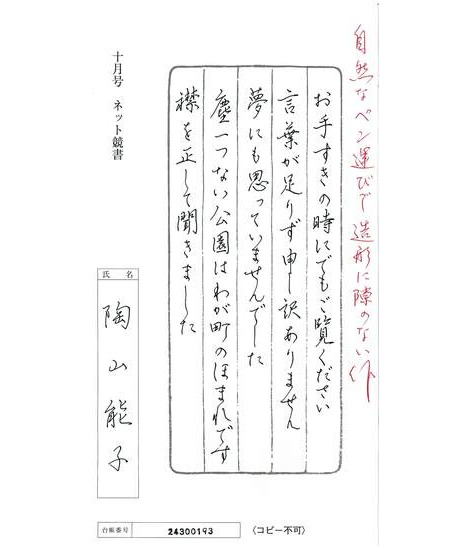 自然なペン運びで造形に隙のない作
お手すきの時にでもご覧ください
言葉が足りず申し訳ありません
夢にも思っていませんでした
塵一つない公園はわが町のほまれです
襟を正して聞きました
十月号 ネット競書
氏名
陶山能子
台帳番号
24300193
〈コピー不可〉